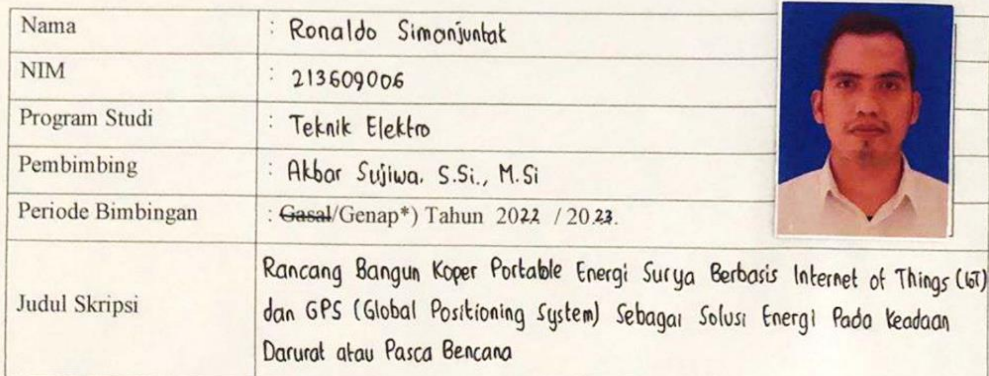 Nama : Ronaldo Simanjuntak
NIM : 213609006
Program Studi : Teknik Elektro
Pembimbing : Akbar Sujiwa. S.Si., M.Si
Periode Bimbingan : Gasal/Genap*) Tahun 2022 / 2023.
Rancang Bangun Koper Portable Energi Surya Berbasis Internet of Things (IoT)
Judul Skripsi dan GPS (Global Positioning System) Sebagai Solusi Energi Pada Keadaan
Darurat atau Pasca Bencana